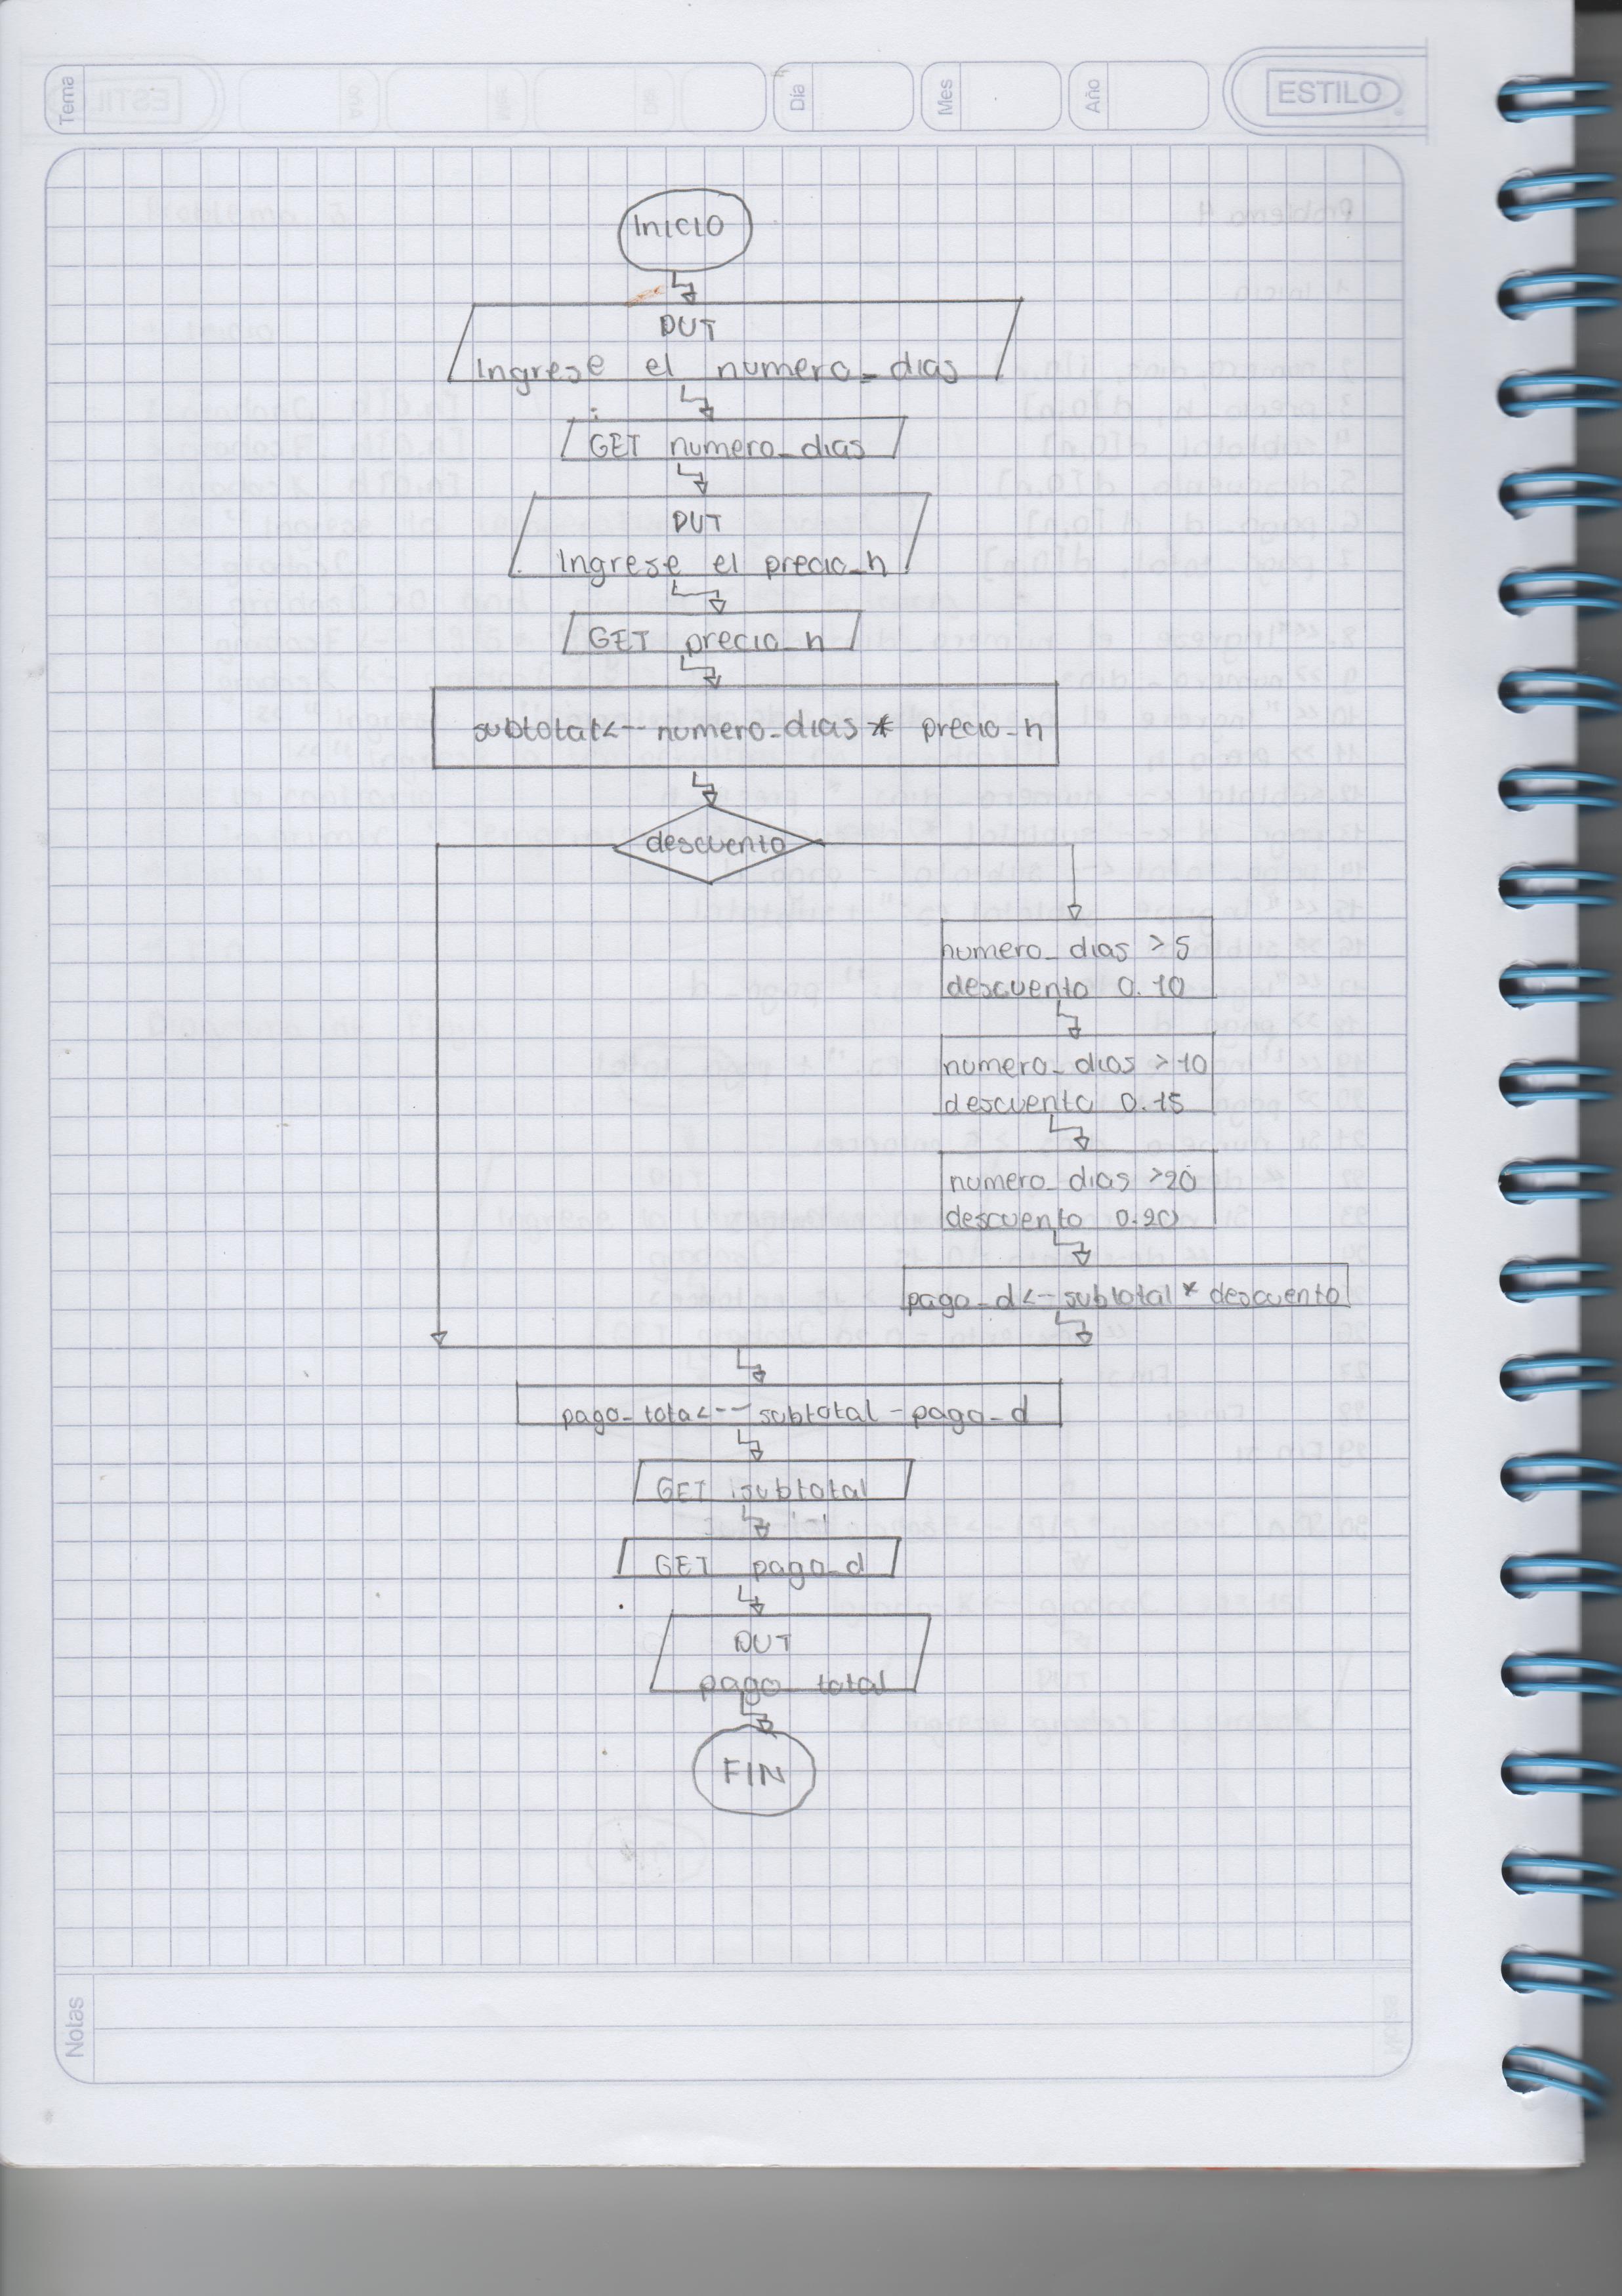 Tema
Día
Mes
Año
ESTILO
INICIO
OUT
Ingrese el numero_dias
GET numero_dias
OUT
Ingrese el precio_h
GET precio_h
subtotal<-- numero_dias * precio_h
descuento
numero_dias >5
descuento 0.10
numero_dias >10
descuento 0.15
numero_dias >20
descuento 0.20
pago_d<--subtotal * descuento
pago_tota<-- subtotal - pago_d
GET subtotal
GET pago_d
OUT
pago total
FIN
Notas